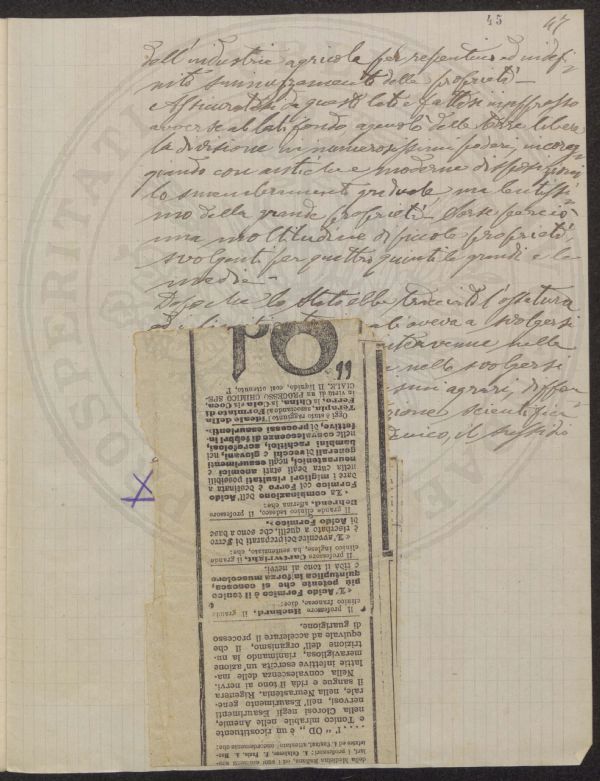 45 47
dell'industria agricola per repentino ed indefi-
nito sminuzzamento della proprietà —
Assicuratosi da questi lati e fattosi in appresso
avverso al latifondo agevolò delle terre libere
la divisione in numerosissimi poderi, incorag-
giando con antiche e moderne disposizioni
lo smembramento graduale, ma lentissi-
mo della grande proprietà. Sorse perciò
una moltitudine di piccole proprietà,
svolgenti per quattro quinti le grandi e le
medie —
Dopo che lo Stato ebbe tracciato l'ossatura
aveva a svolgersi
intervenne nella
nello svolgersi
agrari, diffu-
zione scientifica
il sussidio
della Medicina Italiana, ed i suoi
lari, i professori:
infine ed A. Cantani, attestano concordemente che:
.... l' „ OD „ è un ricostituente
e Tonico mirabile nelle Anemie,
nella Clorosi negli Esaurimenti
nervosi, nell'Esaurimento gene-
rale, nella Neurastenia. Rigenera
il sangue e ridà il tono ai nervi.
Nella convalescenza delle ma-
lattie infettive esercita un'azione
meravigliosa, rianimando la nu-
trizione dell'organismo, il che
equivale ad accelerare il processo
di guarigione.
Il professore Huchard, il grande
clinico francese, dice:
« L'Acido Formico è il tonico
più potente che si conosca,
quintuplica la forza muscolare
e ridà il tono ai nervi.
Il professore Cartwright, il grande
clinico inglese, ha sentenziato, che:
« L'avvenire dei preparati di Ferro
è riserbato a quelli, che sono a base
di Acido Formico ».
Il grande clinico tedesco, il professore
Behrend, afferma che:
« La combinazione dell'Acido
Formico col Ferro è destinata a
dare i migliori risultati possibili
nella cura degli stati anemici e
neurastenici, negli esaurimenti
generali di vecchi e giovani, nei
bambini rachitici, scrofolosi,
nelle convalescenze di febbri in-
fettive, di processi esaurienti.
Oggi è stato raggiunto l'ideale della
Terapia, associando al Formiato di
Ferro, la China, la Cola e la Coca,
in virtù di un PROCESSO CHIMICO SPE-
CIALE. Il liquido, così ottenuto, l'
„OD
X